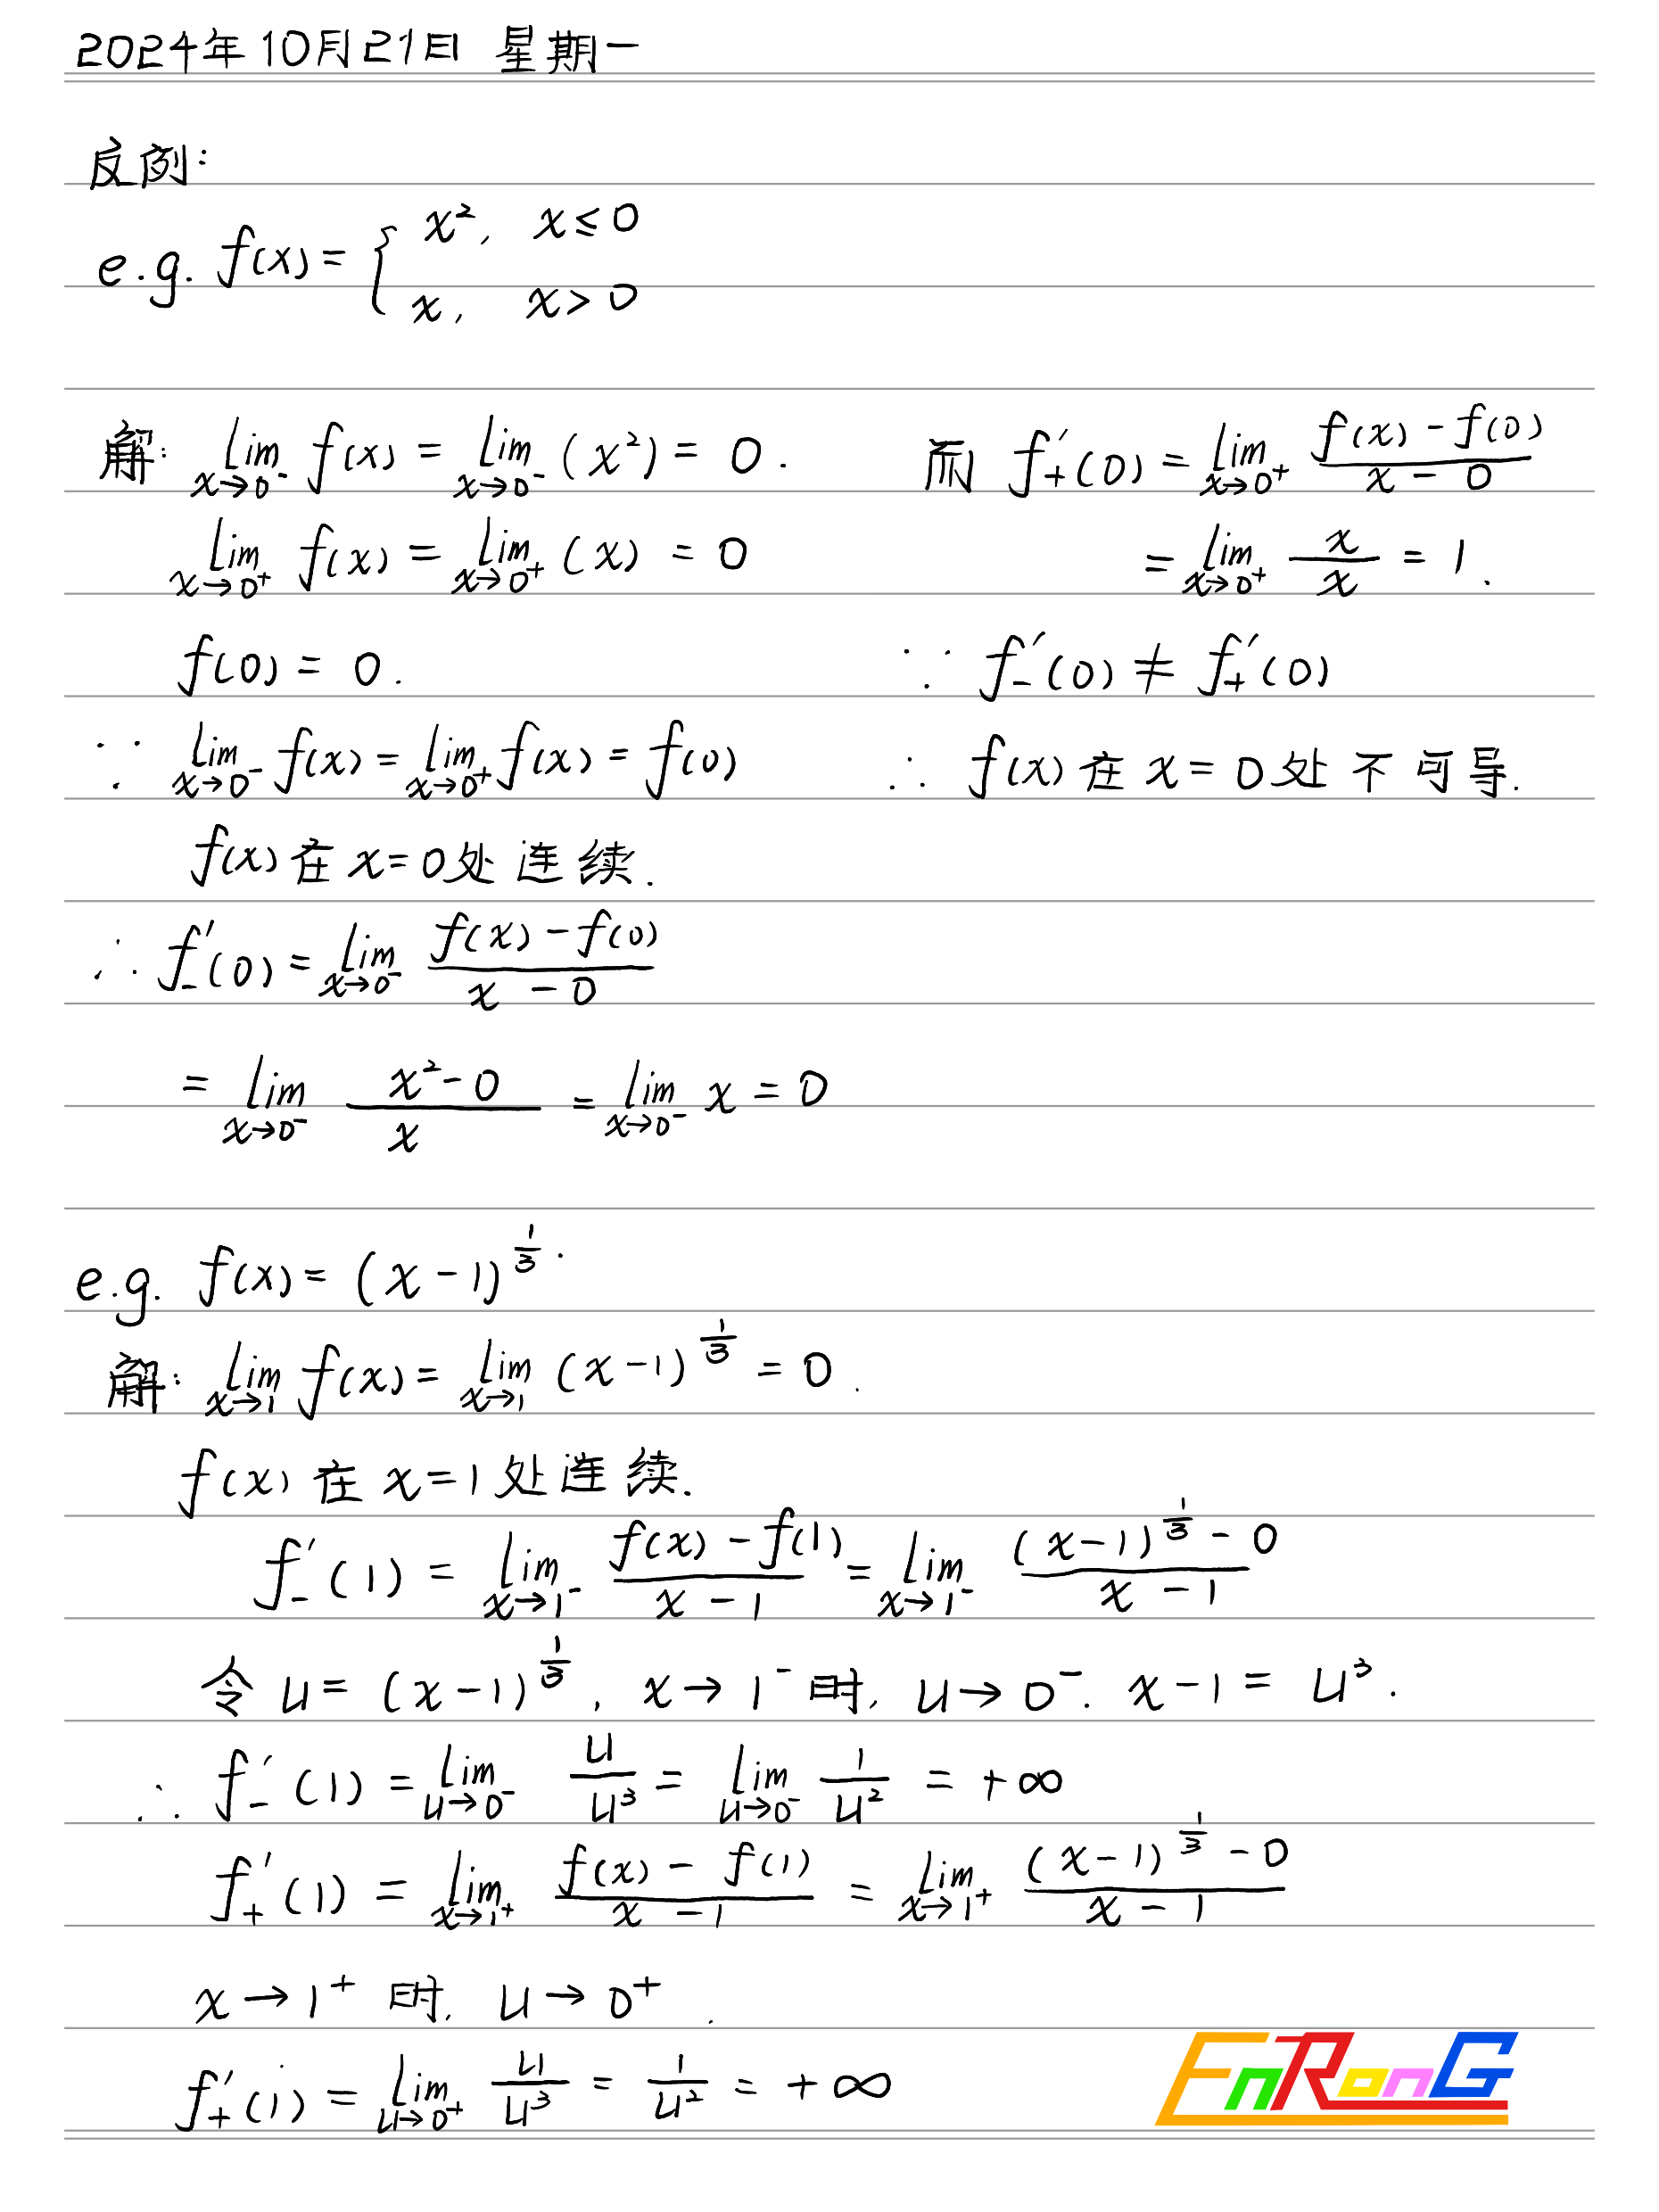 2024年10月21日 星期一
反例:
e.g. f(x) = { x², x ≤ 0
x, x > 0
解: lim_{x→0⁻} f(x) = lim_{x→0⁻} (x²) = 0.
lim_{x→0⁺} f(x) = lim_{x→0⁺} (x) = 0
f(0) = 0.
∵ lim_{x→0⁻} f(x) = lim_{x→0⁺} f(x) = f(0)
f(x) 在 x = 0 处 连续.
∴ f₋′(0) = lim_{x→0⁻} (f(x) - f(0))/(x - 0)
= lim_{x→0⁻} (x² - 0)/x = lim_{x→0⁻} x = 0
而 f₊′(0) = lim_{x→0⁺} (f(x) - f(0))/(x - 0)
= lim_{x→0⁺} x/x = 1.
∵ f₋′(0) ≠ f₊′(0)
∴ f(x) 在 x = 0 处 不可导.
e.g. f(x) = (x - 1)^{1/3}.
解: lim_{x→1} f(x) = lim_{x→1} (x - 1)^{1/3} = 0.
f(x) 在 x = 1 处连续.
f₋′(1) = lim_{x→1⁻} (f(x) - f(1))/(x - 1) = lim_{x→1⁻} ((x - 1)^{1/3} - 0)/(x - 1)
令 u = (x - 1)^{1/3}, x → 1⁻ 时, u → 0⁻. x - 1 = u³.
∴ f₋′(1) = lim_{u→0⁻} u/u³ = lim_{u→0⁻} 1/u² = +∞
f₊′(1) = lim_{x→1⁺} (f(x) - f(1))/(x - 1) = lim_{x→1⁺} ((x - 1)^{1/3} - 0)/(x - 1)
x → 1⁺ 时, u → 0⁺.
f₊′(1) = lim_{u→0⁺} u/u³ = 1/u² = +∞
EnRonG